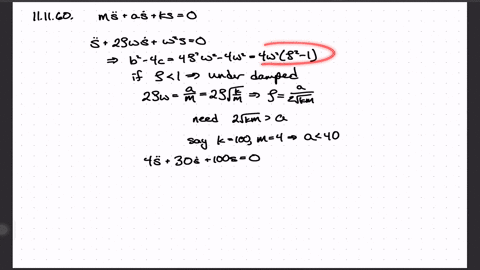 11.11.60. ms̈ + aṡ + ks = 0
s̈ + 2ζωṡ + ω²s = 0
⇒ b² - 4c = 4ζ²ω² - 4ω² = 4ω²(ζ² - 1)
if ζ < 1 ⇒ under damped
2ζω = a/m = 2ζ√(k/m) ⇒ ζ = a/(2√km)
need 2√km > a
say k = 100, m = 4 ⇒ a < 40
4s̈ + 30ṡ + 100s = 0